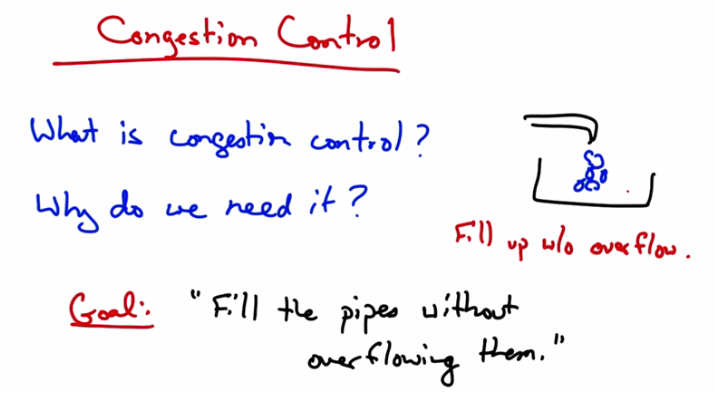 Congestion Control
What is congestion control?
Why do we need it?
Fill up w/o overflow.
Goal: "Fill the pipes without
overflowing them."